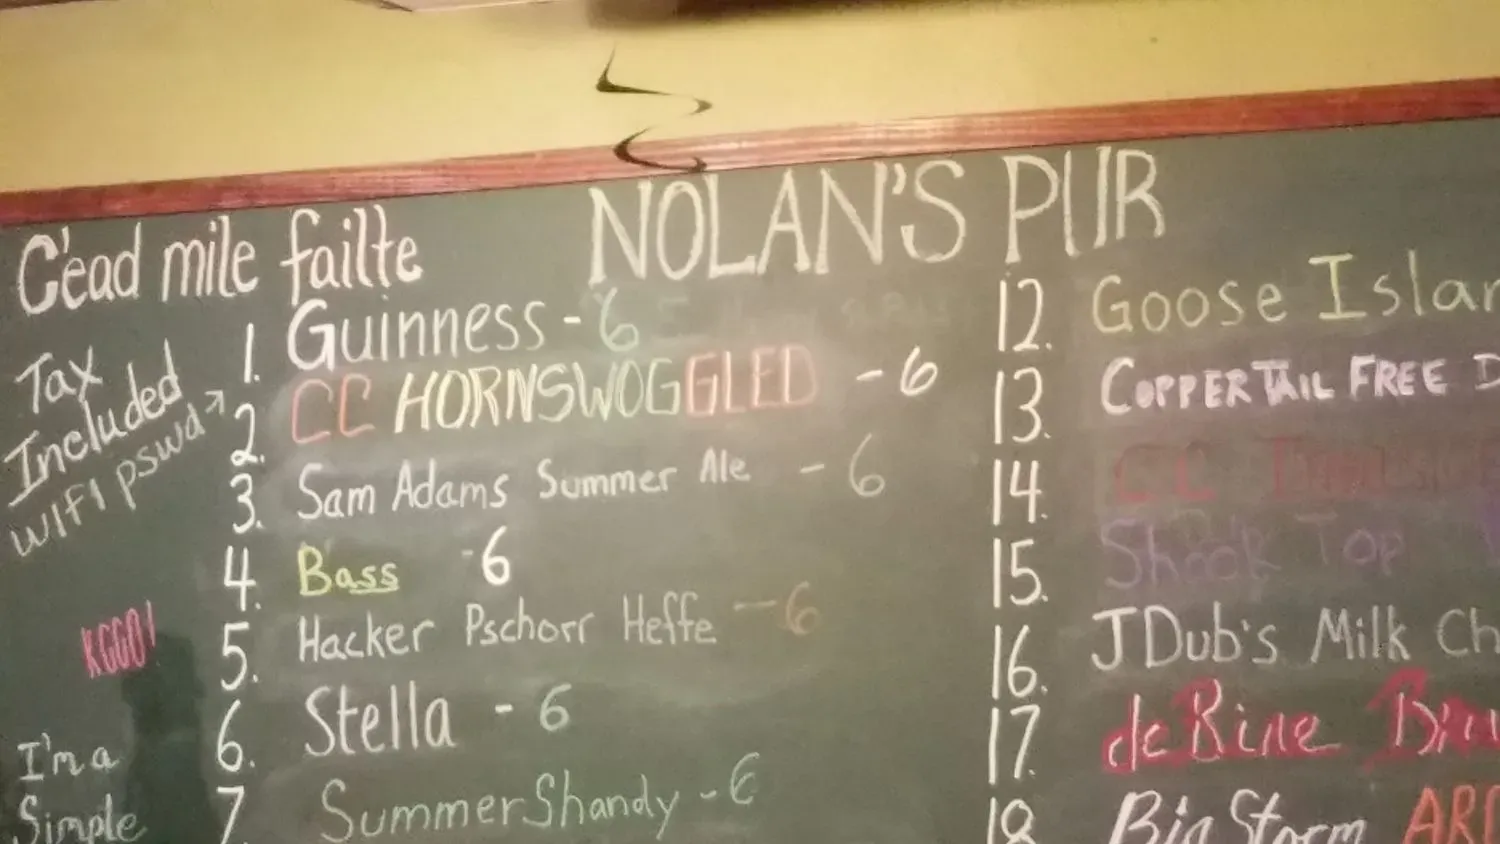 NOLAN'S PUB
C'ead mile failte
Tax
Included
WIFI pswd
KGGO!
I'm a
Simple
1. Guinness - 6
2. CC HORNSWOGGLED - 6
3. Sam Adams Summer Ale - 6
4. Bass - 6
5. Hacker Pschorr Heffe - 6
6. Stella - 6
7. Summer Shandy - 6
12. Goose Islan
13. COPPERTAIL FREE D
14. CC
15. Shock Top
16. JDub's Milk Ch
17.
18. Big Storm ARC